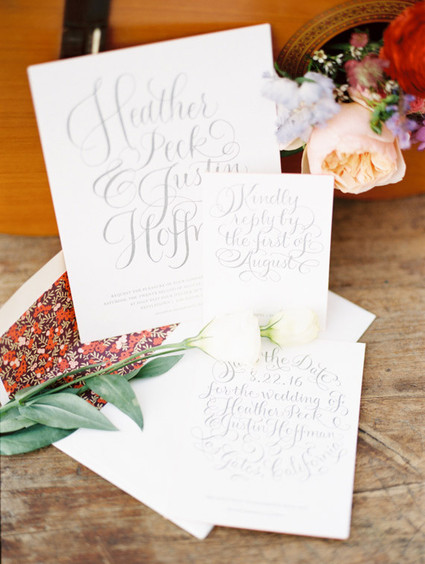 Heather
Peck
& Justin
Hoffm
Kindly
reply by
the first of
August
Save the Date
8.22.16
For the wedding of
Heather Peck &
Justin Hoffman
Los Gatos, California